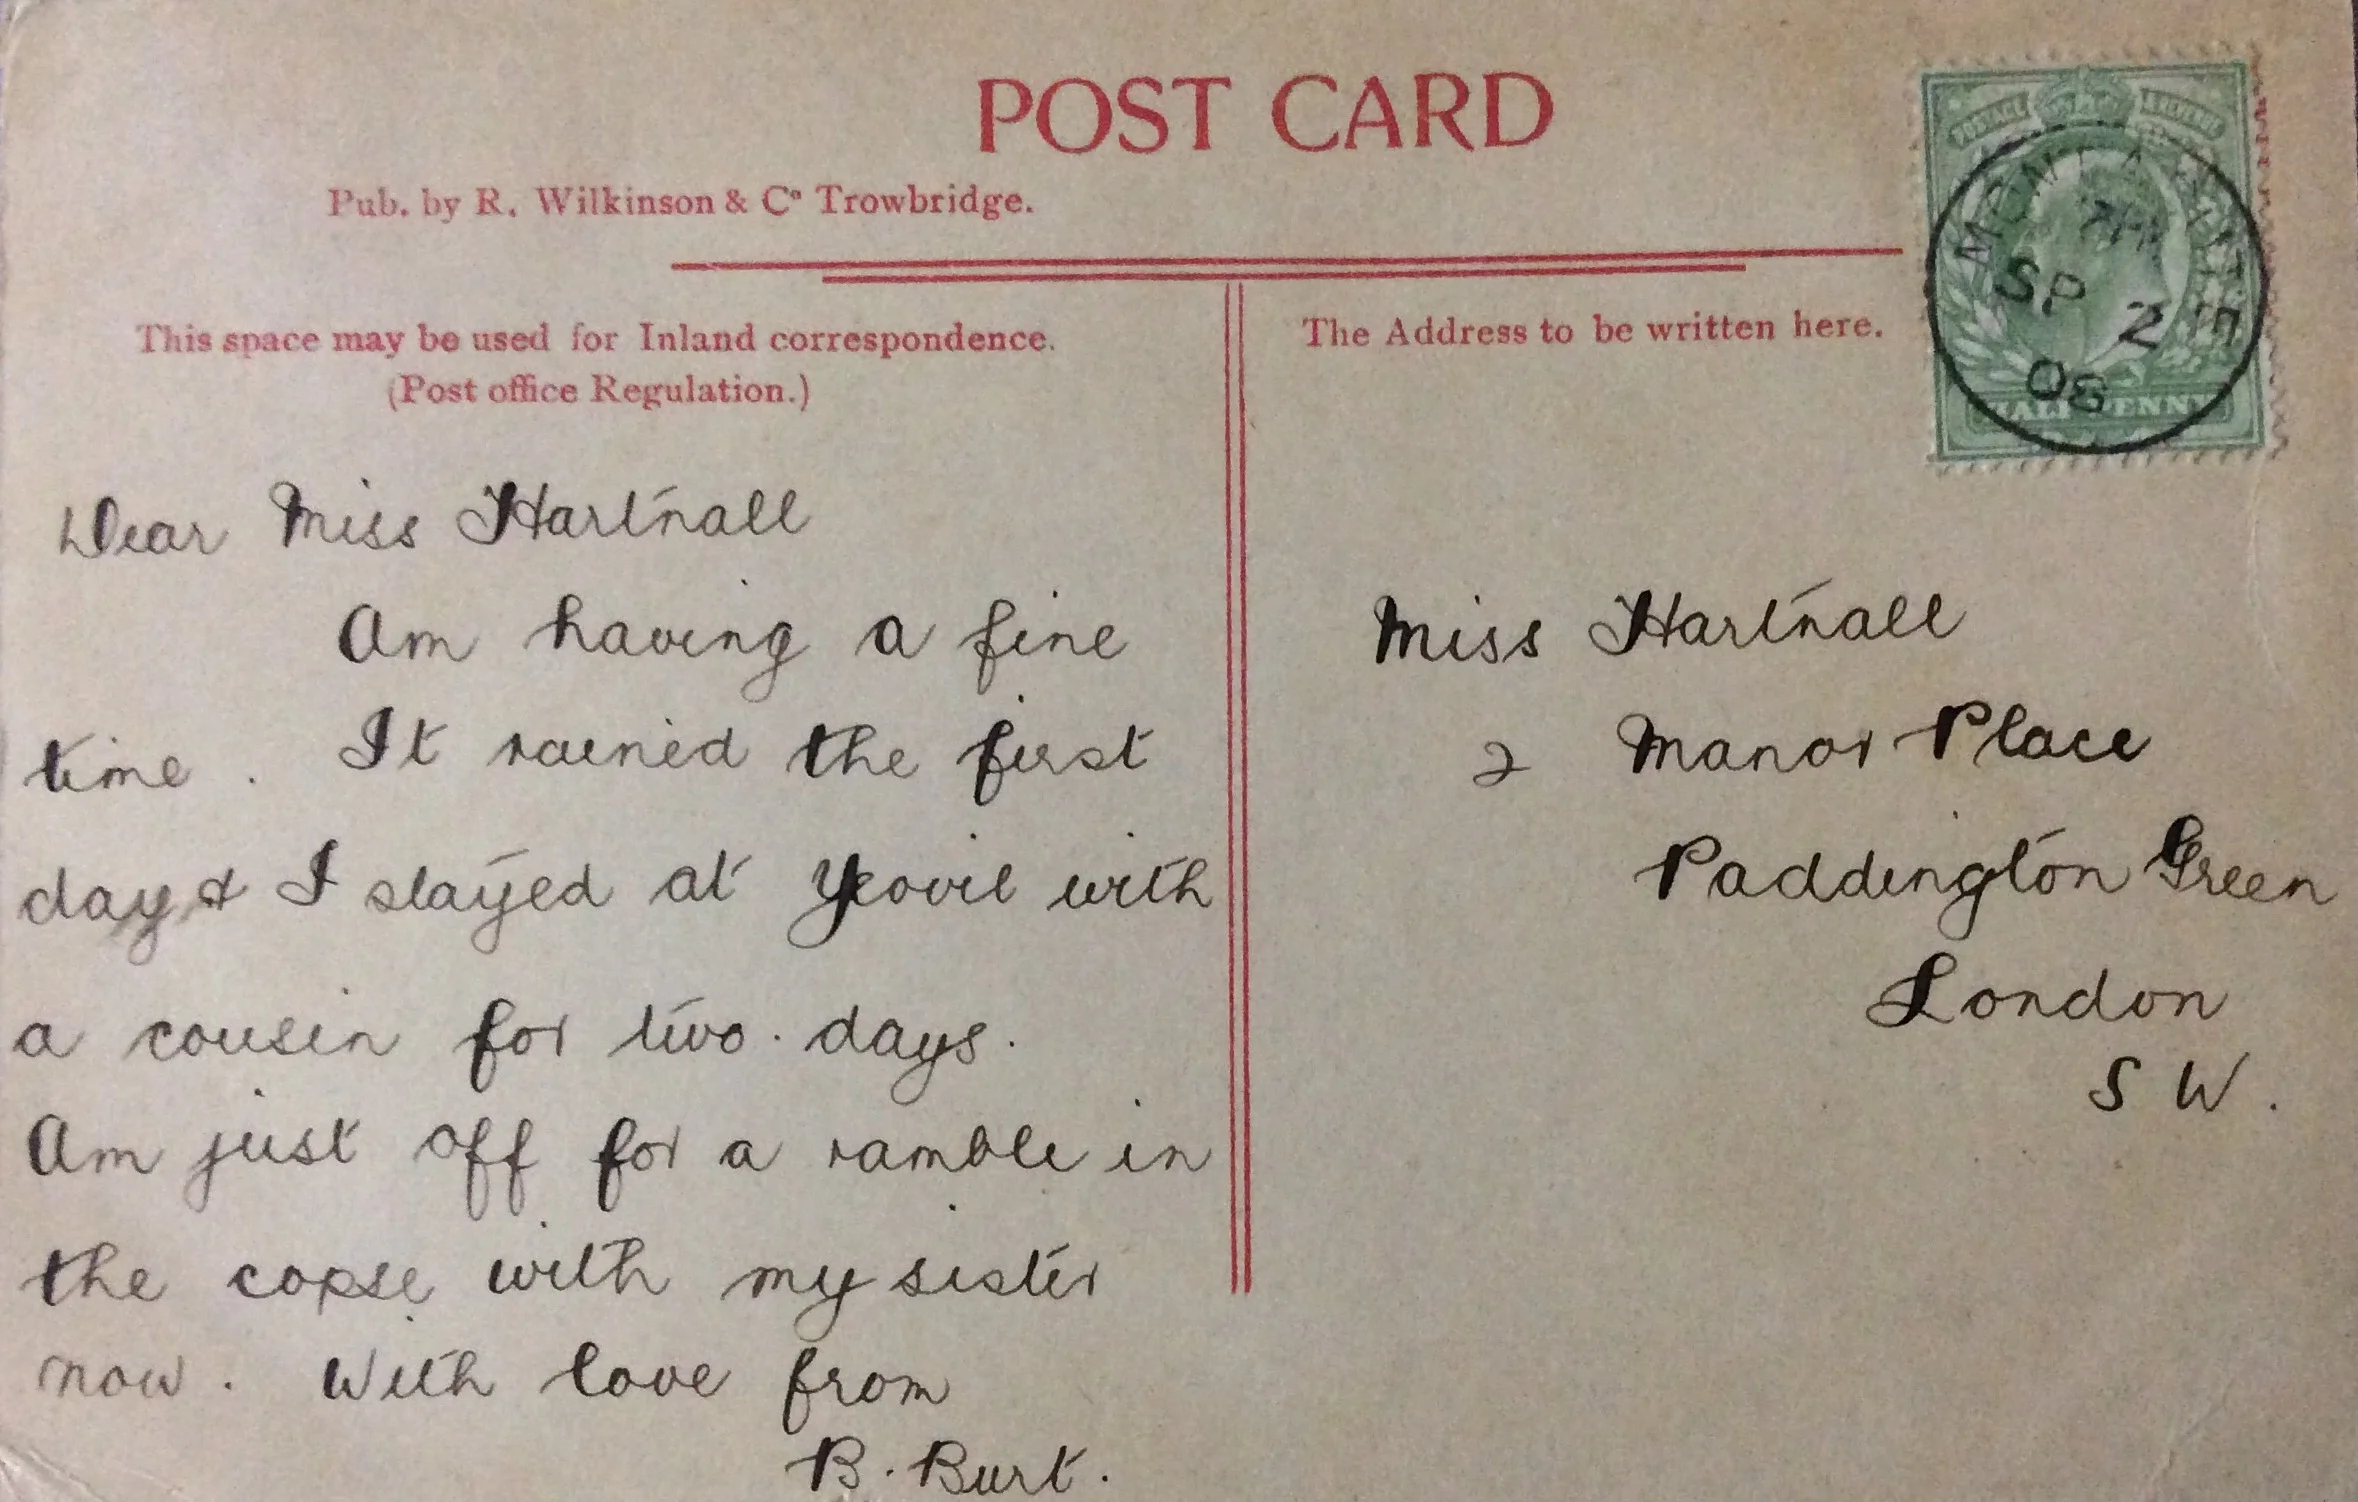 POST CARD
Pub. by R. Wilkinson & Co Trowbridge.
This space may be used for Inland correspondence.
(Post office Regulation.)
The Address to be written here.
POSTAGE REVENUE
7PM
SP 2
08
HALFPENNY
Dear Miss Hartnall
Am having a fine
time. It rained the first
day & I stayed at Yeovil with
a cousin for two days.
Am just off for a ramble in
the copse with my sister
now. With love from
B. Burt.
Miss Hartnall
2 Manor Place
Paddington Green
London
S W.